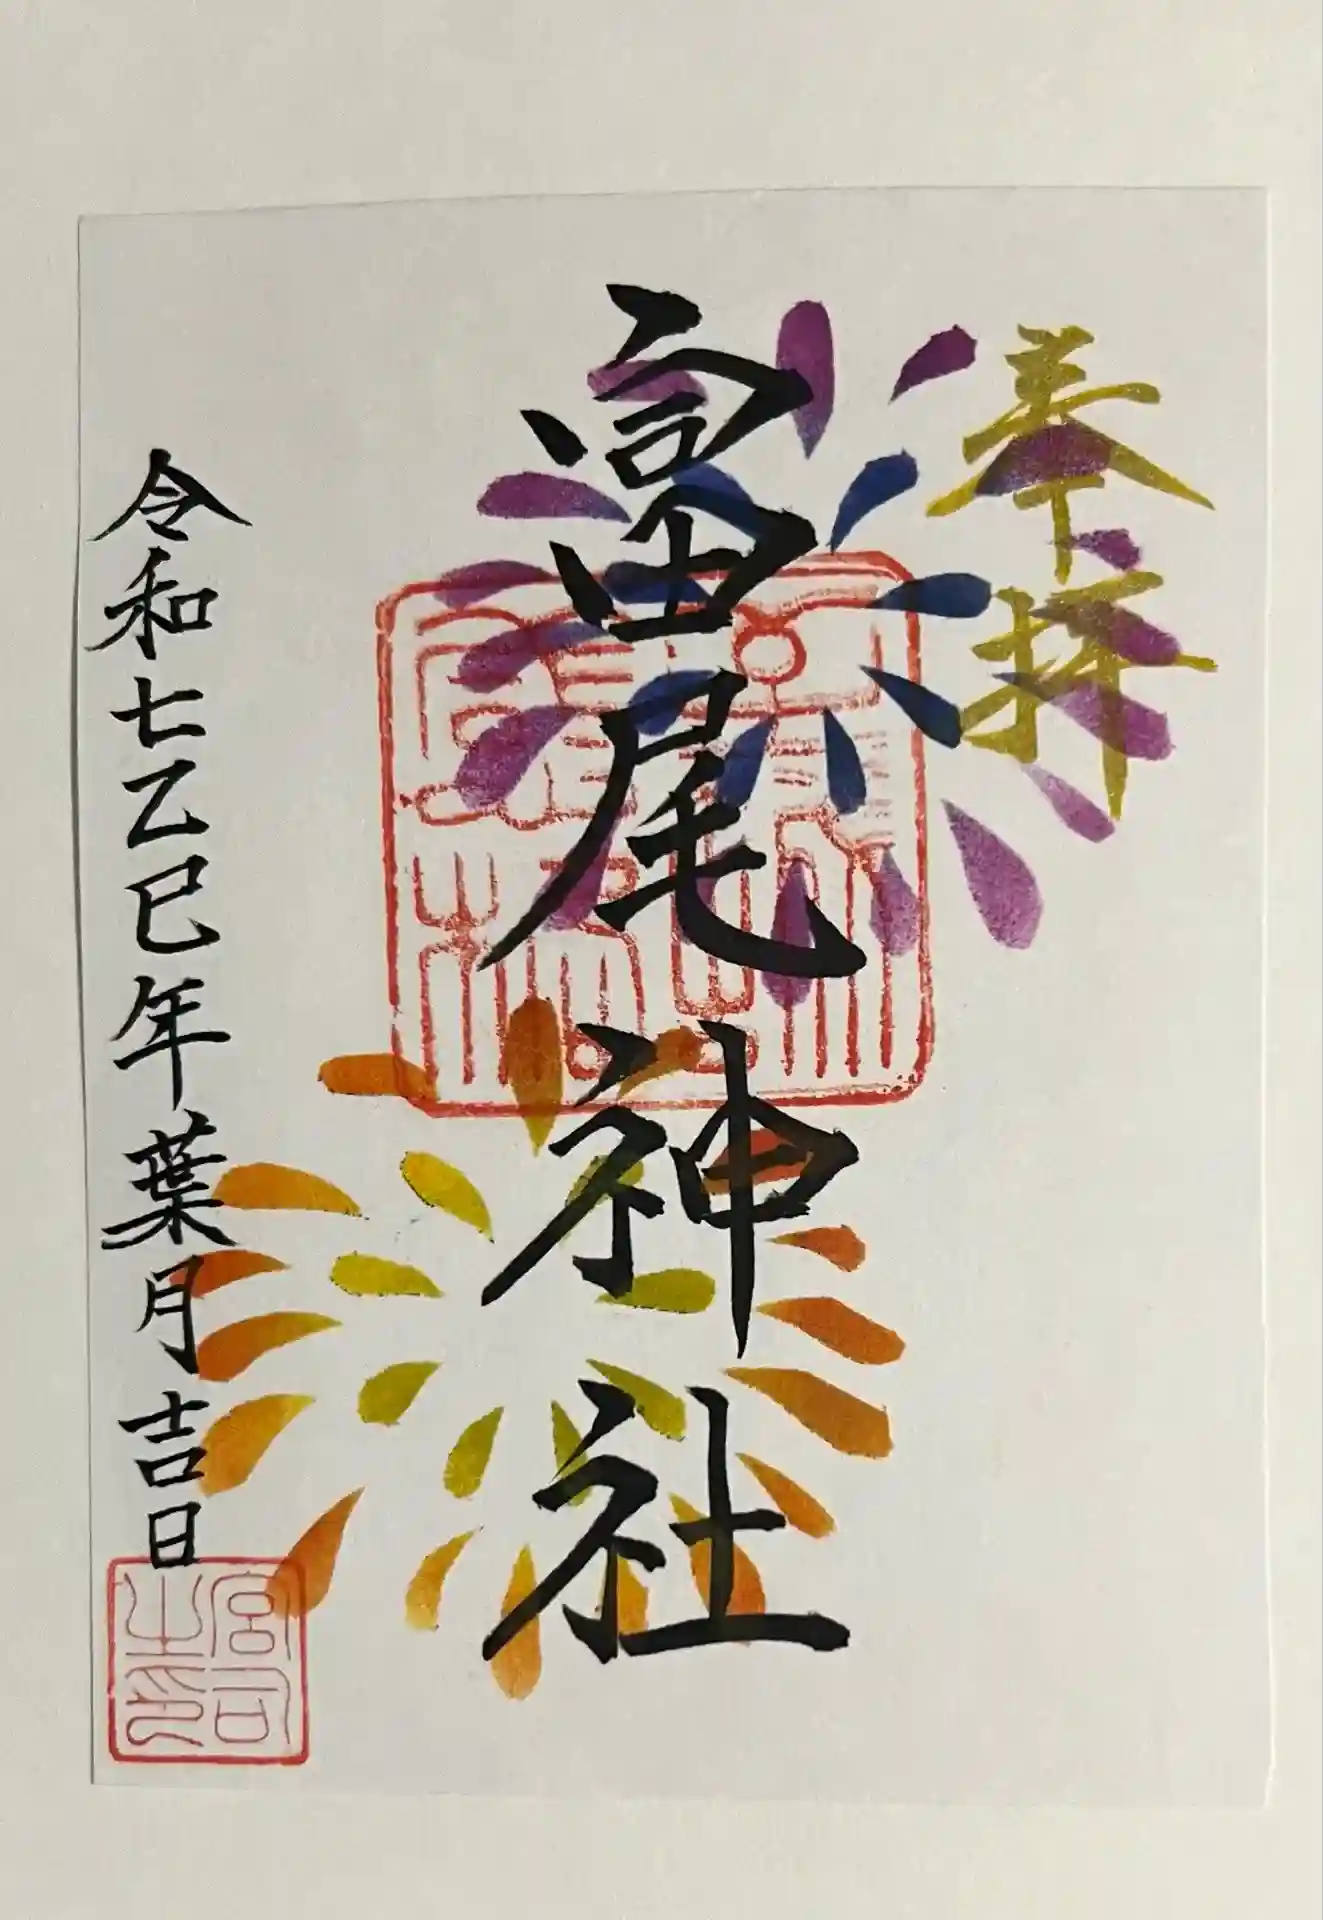 奉拝
富尾神社
令和七乙巳年葉月吉日
宮司之印